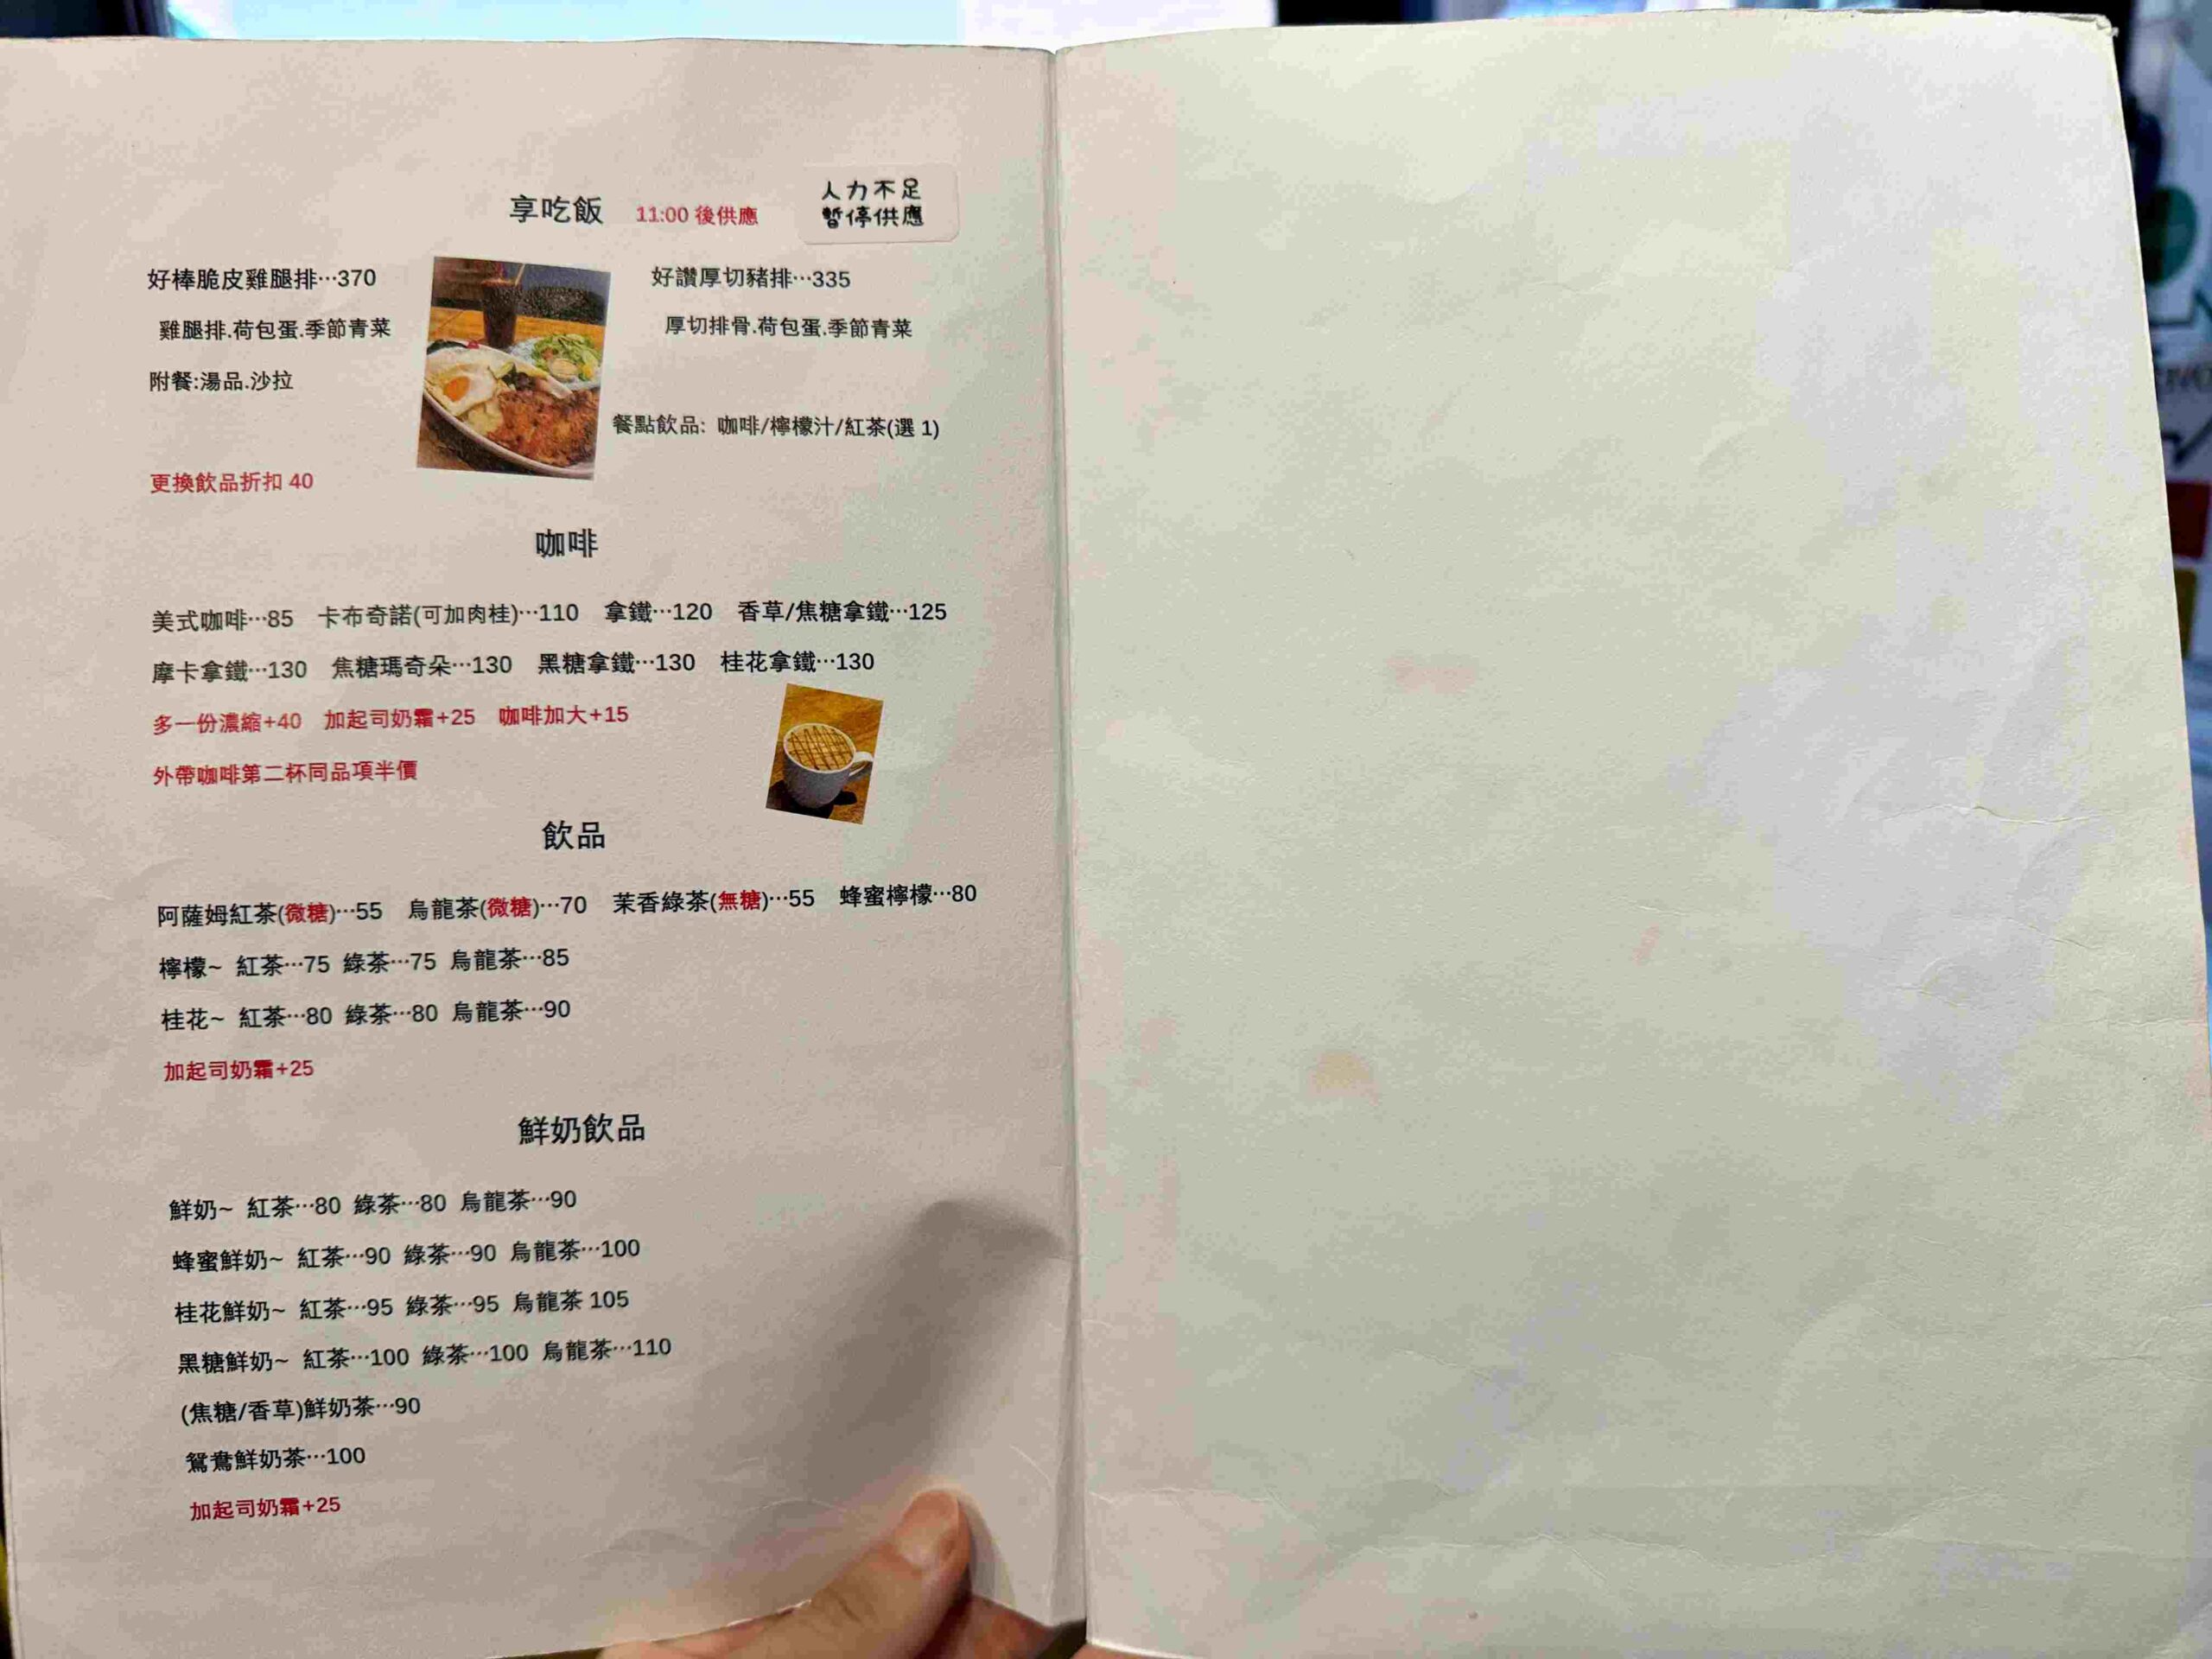 享吃飯 11:00 後供應
人力不足
暫停供應
好棒脆皮雞腿排…370 好讚厚切豬排…335
雞腿排.荷包蛋.季節青菜 厚切排骨.荷包蛋.季節青菜
附餐:湯品.沙拉
餐點飲品: 咖啡/檸檬汁/紅茶(選 1)
更換飲品折扣 40
咖啡
美式咖啡…85 卡布奇諾(可加肉桂)…110 拿鐵…120 香草/焦糖拿鐵…125
摩卡拿鐵…130 焦糖瑪奇朵…130 黑糖拿鐵…130 桂花拿鐵…130
多一份濃縮+40 加起司奶霜+25 咖啡加大+15
外帶咖啡第二杯同品項半價
飲品
阿薩姆紅茶(微糖)…55 烏龍茶(微糖)…70 茉香綠茶(無糖)…55 蜂蜜檸檬…80
檸檬~ 紅茶…75 綠茶…75 烏龍茶…85
桂花~ 紅茶…80 綠茶…80 烏龍茶…90
加起司奶霜+25
鮮奶飲品
鮮奶~ 紅茶…80 綠茶…80 烏龍茶…90
蜂蜜鮮奶~ 紅茶…90 綠茶…90 烏龍茶…100
桂花鮮奶~ 紅茶…95 綠茶…95 烏龍茶 105
黑糖鮮奶~ 紅茶…100 綠茶…100 烏龍茶…110
(焦糖/香草)鮮奶茶…90
鴛鴦鮮奶茶…100
加起司奶霜+25